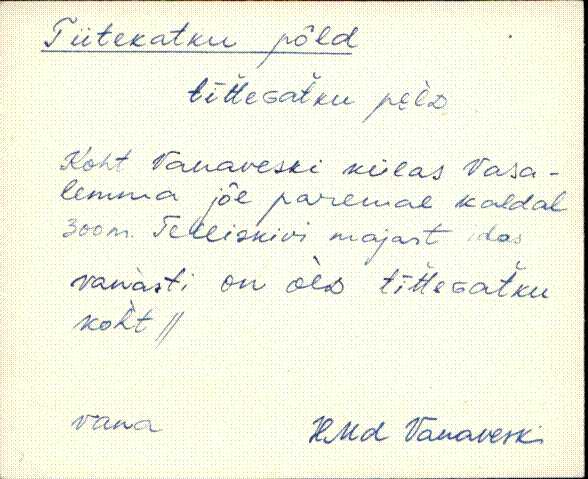 Tiitekatku põld
tīttᴇGat̆ku pèlᴅ
Koht Vanaveski külas Vasa-
lemma jõe paremal kaldal
300 m. Telliskivi majast idas
vanàsti on òlᴅ tīttᴇGat̆ku
kòht //
vana
HMd Vanaveski